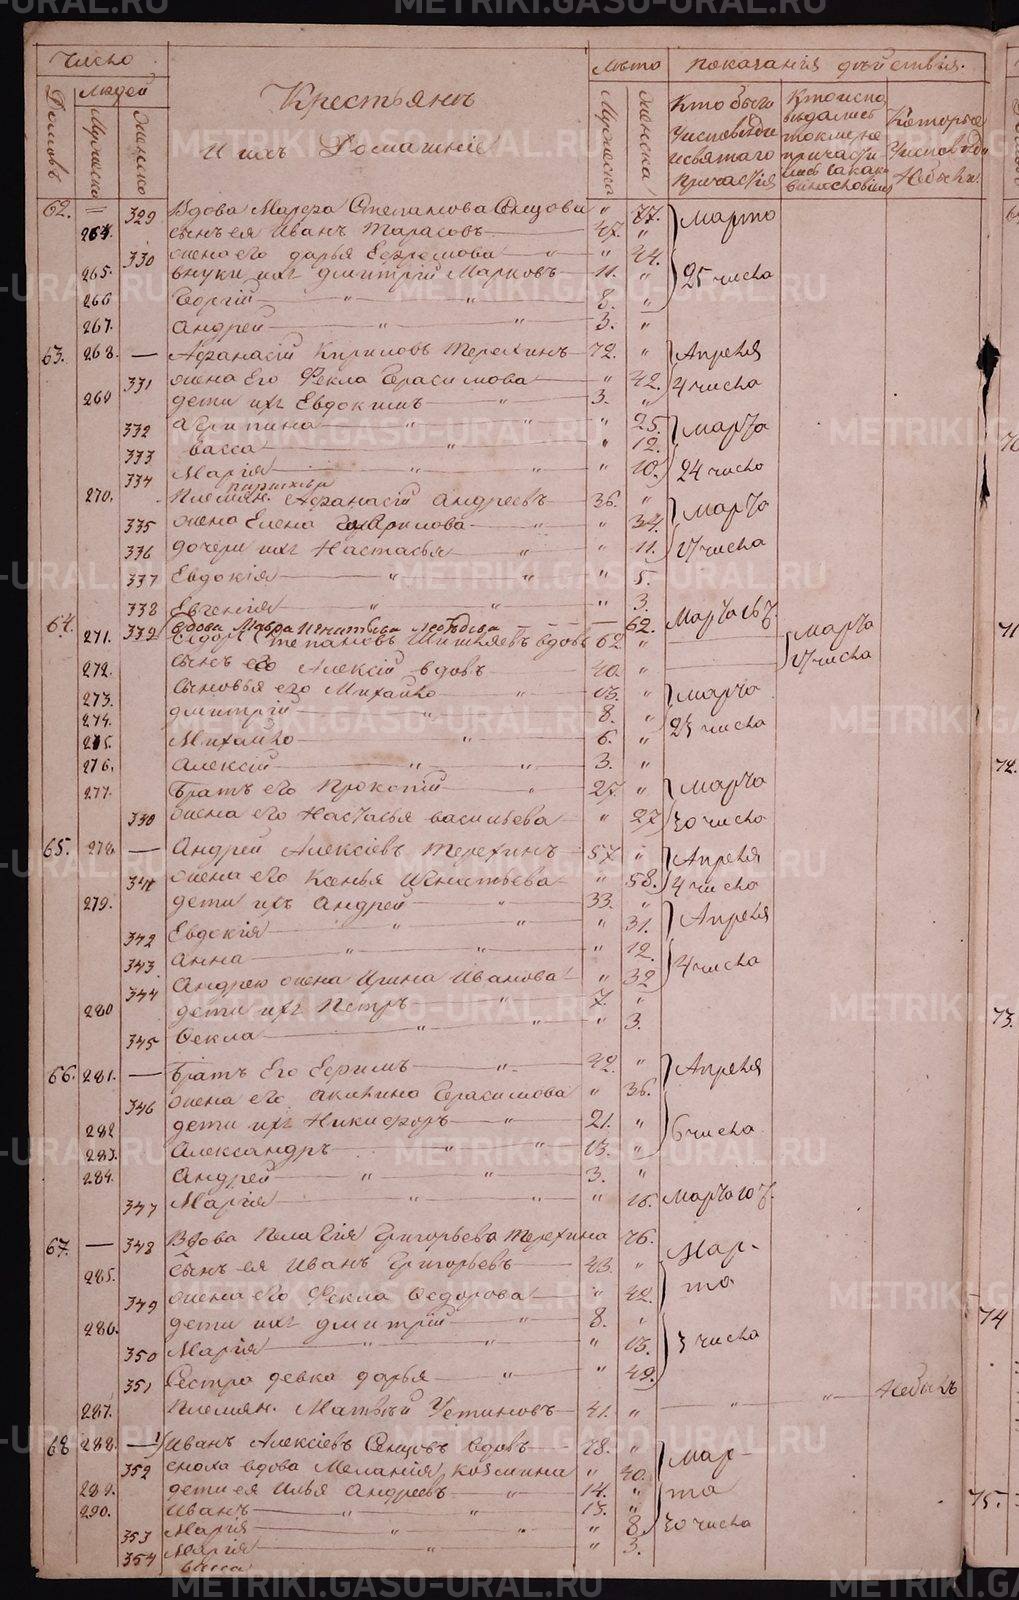 Число
Людей
Домовъ
Мужеска
Женско
Крестьянъ
И ихъ Домашніе
Лѣта
Мужеска
Женска
показанія дѣйствія.
Кто были у исповѣди и святаго причастія
Которые у исповѣди не были
62. 329 Вдова Марѳа Степанова Сенцова " 77. Марта
264. сынъ ея Иванъ Тарасовъ 47. "
330 жена его дарья Ефремова " 44.
265. внуки ихъ дмитрій Марковъ 11. " 25 числа
266 Георгій " " 8. "
267. Андрей " " 3. "
63. 268. — Афанасій Кириловъ Терехинъ 72. " Апреля
331 жена Его Фекла Герасимова " 42. 4 числа
269 дети ихъ Евдокимъ " 3. "
332 агрипина " " " 25. Марта
333 васса " " 12.
334 Марія " " " 10. 24 числа
270. Племян. Афанасій андреевъ 36. " Марта
335 жена Елена Гаврилова " " 34.
336 дочери ихъ Настасья " " 11. 17 числа
337 Евдокія " " " 5.
338 Евгенія " " " 3.
64. 339 вдова Мавра Игнатьева 62. Марта
271. Федоръ Степановъ вдовъ 62 " Марта
272. сынъ его Алексій вдовъ 40. " 17 числа
273. сыновья его Михайло " 13. " Марта
274. дмитрій " " 8. " 23 числа
275. Михайло " 6. "
276. Алексій " " 3. "
277. Братъ его Прокопій " 27. " Марта
340 жена его Настасья васильева " 27 30 числа
65. 278. — Андрей Алексіевъ Терехинъ 57. " Апреля
341 жена его Ксенья Игнатьева " 58. 4 числа
279. дети ихъ Андрей " 33. "
342 Евдокія " " " 31. Апреля
343. анна " " " 12.
344 Андрею жена Ирина Иванова " 32 4 числа
280 дети ихъ Петръ " 7. "
345 Фекла " " " 3.
66. 281. — Братъ Его Ефимъ " 42. " Апреля
346 жена его акилина Герасимова " 36.
282 дети ихъ Никифоръ " 21. " 6 числа
283. Александръ " " 13. "
284. Андрей " " 3. "
347 Марія " " " 16. Марта 10 ч.
67. — 348 Вдова Пелагія Григорьева Терехина 76. Мар-
285. сынъ ея Иванъ Григорьевъ 43. " та
349 жена его Фекла Федорова " 42.
286. дети ихъ дмитрій " 8. "
350 Марія " " " 13. 3 числа
351 Сестра девка дарья " " 49.
287. Племян. Матвѣй Устиновъ 41. " " " Небылъ
68 288. — Иванъ Алексіевъ Сенцовъ вдовъ 78. " Мар-
352 сноха вдова Меланія Козмина " 40.
289. дети ея Илья Андреевъ " 14. " та
290. Иванъ " " 13. "
353 Марія " " " 8. 30 числа
354 Марія " " 3.
васса
70
71
72.
73.
74
75.